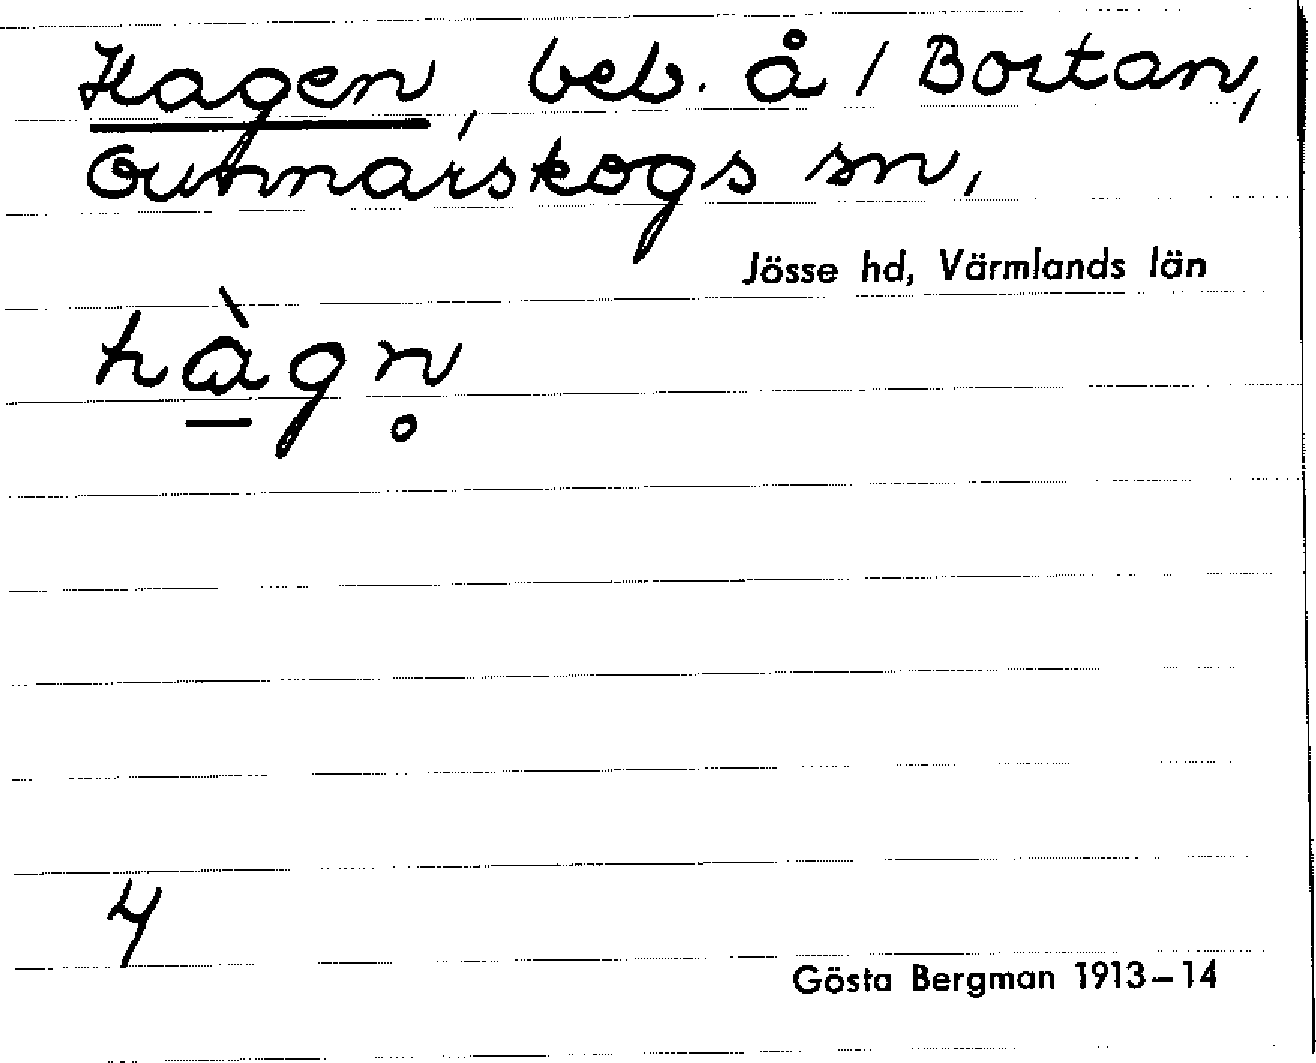 Hagen, beb. å / Bortan,
Gunnarskogs sn,
Jösse hd, Värmlands län
hàgn̥
4
Gösta Bergman 1913–14